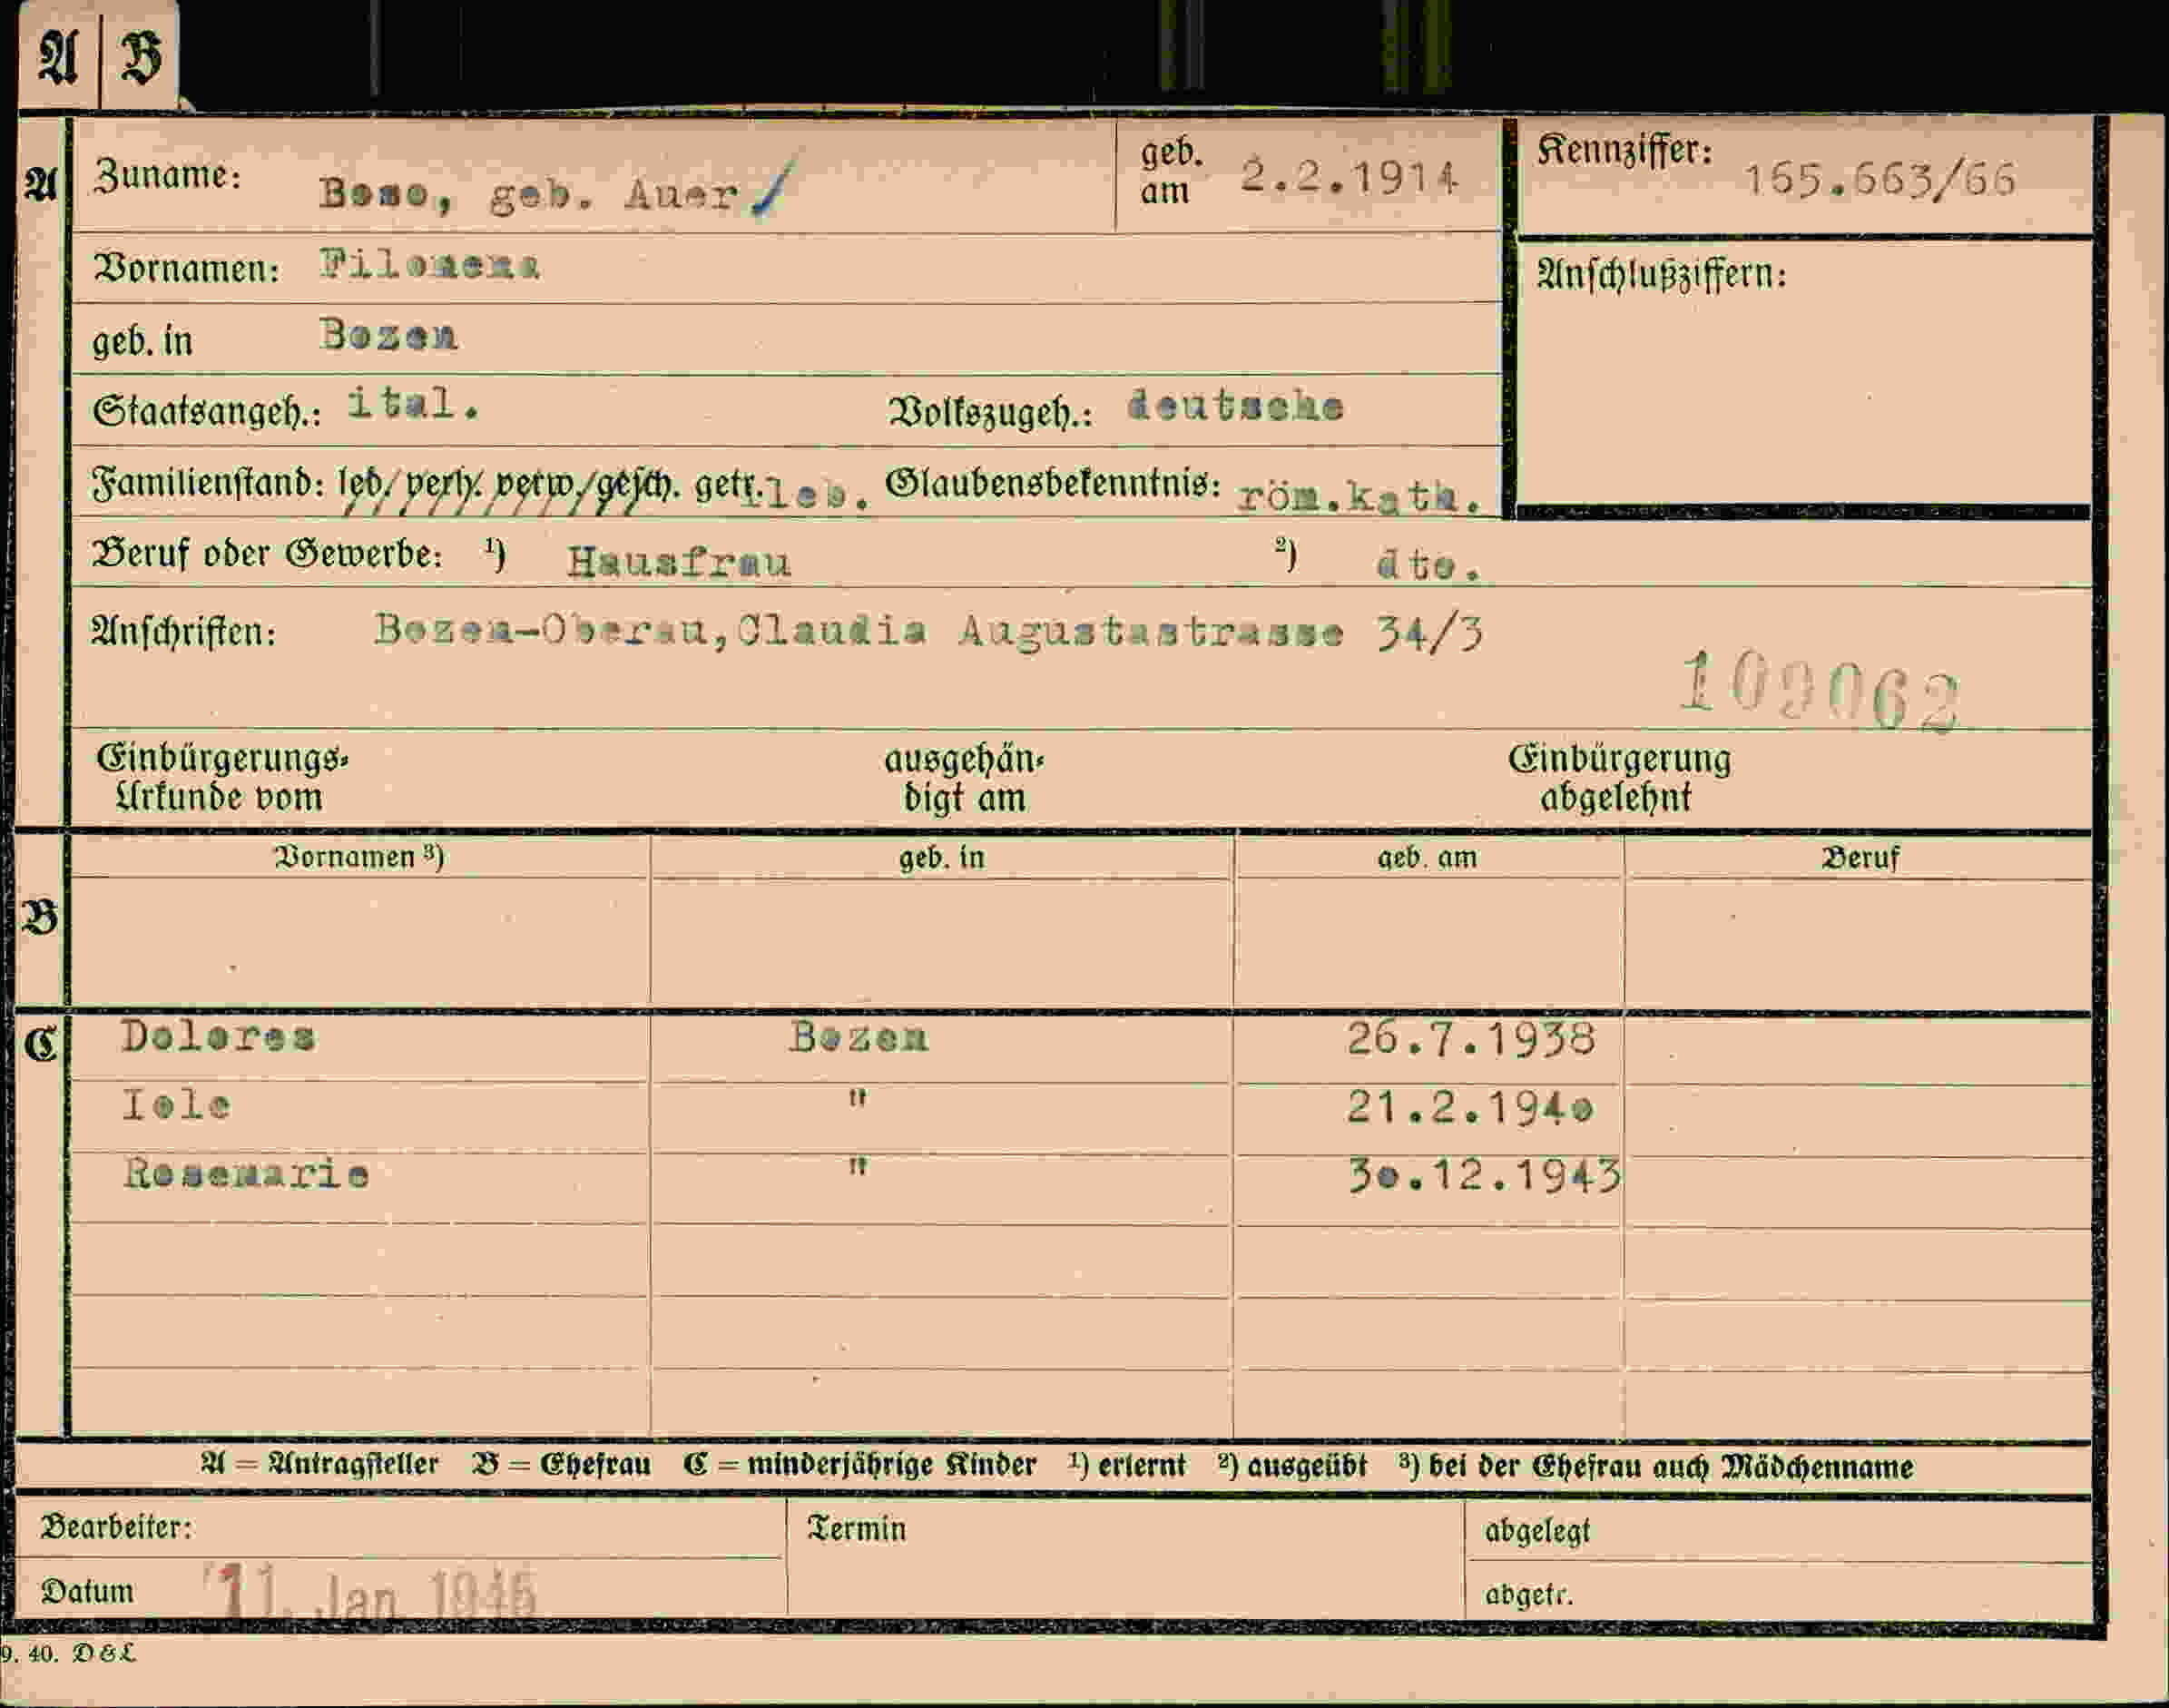 A B
A Zuname: Boso, geb. Auer geb. am 2.2.1914 Kennziffer: 165.663/66
Vornamen: Filomena Anschlußziffern:
geb. in Bozen
Staatsangeh.: ital. Volkszugeh.: deutsche
Familienstand: led/verh. verw./gesch. getr. leb. Glaubensbekenntnis: röm.kath.
Beruf oder Gewerbe: 1) Hausfrau 2) dto.
Anschriften: Bozen-Oberau, Claudia Augustastrasse 34/3
109062
Einbürgerungs- ausgehän- Einbürgerung
Urkunde vom digt am abgelehnt
Vornamen 3) geb. in geb. am Beruf
B
C Dolores Bozen 26.7.1938
Iole " 21.2.1940
Rosemarie " 30.12.1943
A = Antragsteller B = Ehefrau C = minderjährige Kinder 1) erlernt 2) ausgeübt 3) bei der Ehefrau auch Mädchenname
Bearbeiter: Termin abgelegt
Datum 11. Jan abgetr.
9. 40. D & L